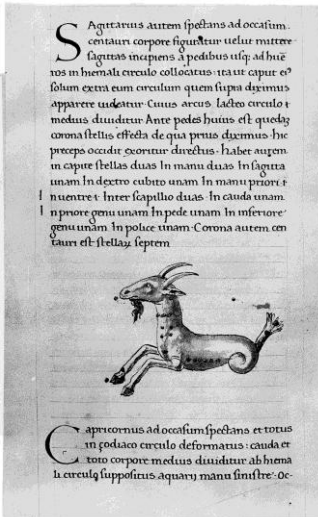 Sagittarius autem spectans ad occasum.
centauri corpore figuratur uelut mittere
sagittas incipiens a pedibus usq; ad hue
ros in hiemali circulo collocatus· ita ut caput ei⁹
solum extra eum circulum quem supra diximus
apparere uideatur· Cuius arcus lacteo circulo &
medius diuiditur. Ante pedes huius est quedaʒ
corona stellis effecta de qua prius diximus· hic
preceps occidit exoritur directus· habet autem
in capite stellas duas In manu duas In sagitta
unam In dextro cubito unam In manu priori i
n uentre i· Inter scapillio duas· In cauda unam
In priore genu unam In pede unam In inferiore
genu unam In police unam· Corona autem cen
tauri est stellaʒ septem
Capricornus ad occasum spectans et totus
in çodiaco circulo deformatus: cauda et
toto corpore medius diuiditur ab hiema
li circulo suppositus aquarij manu sinistre· Oc-